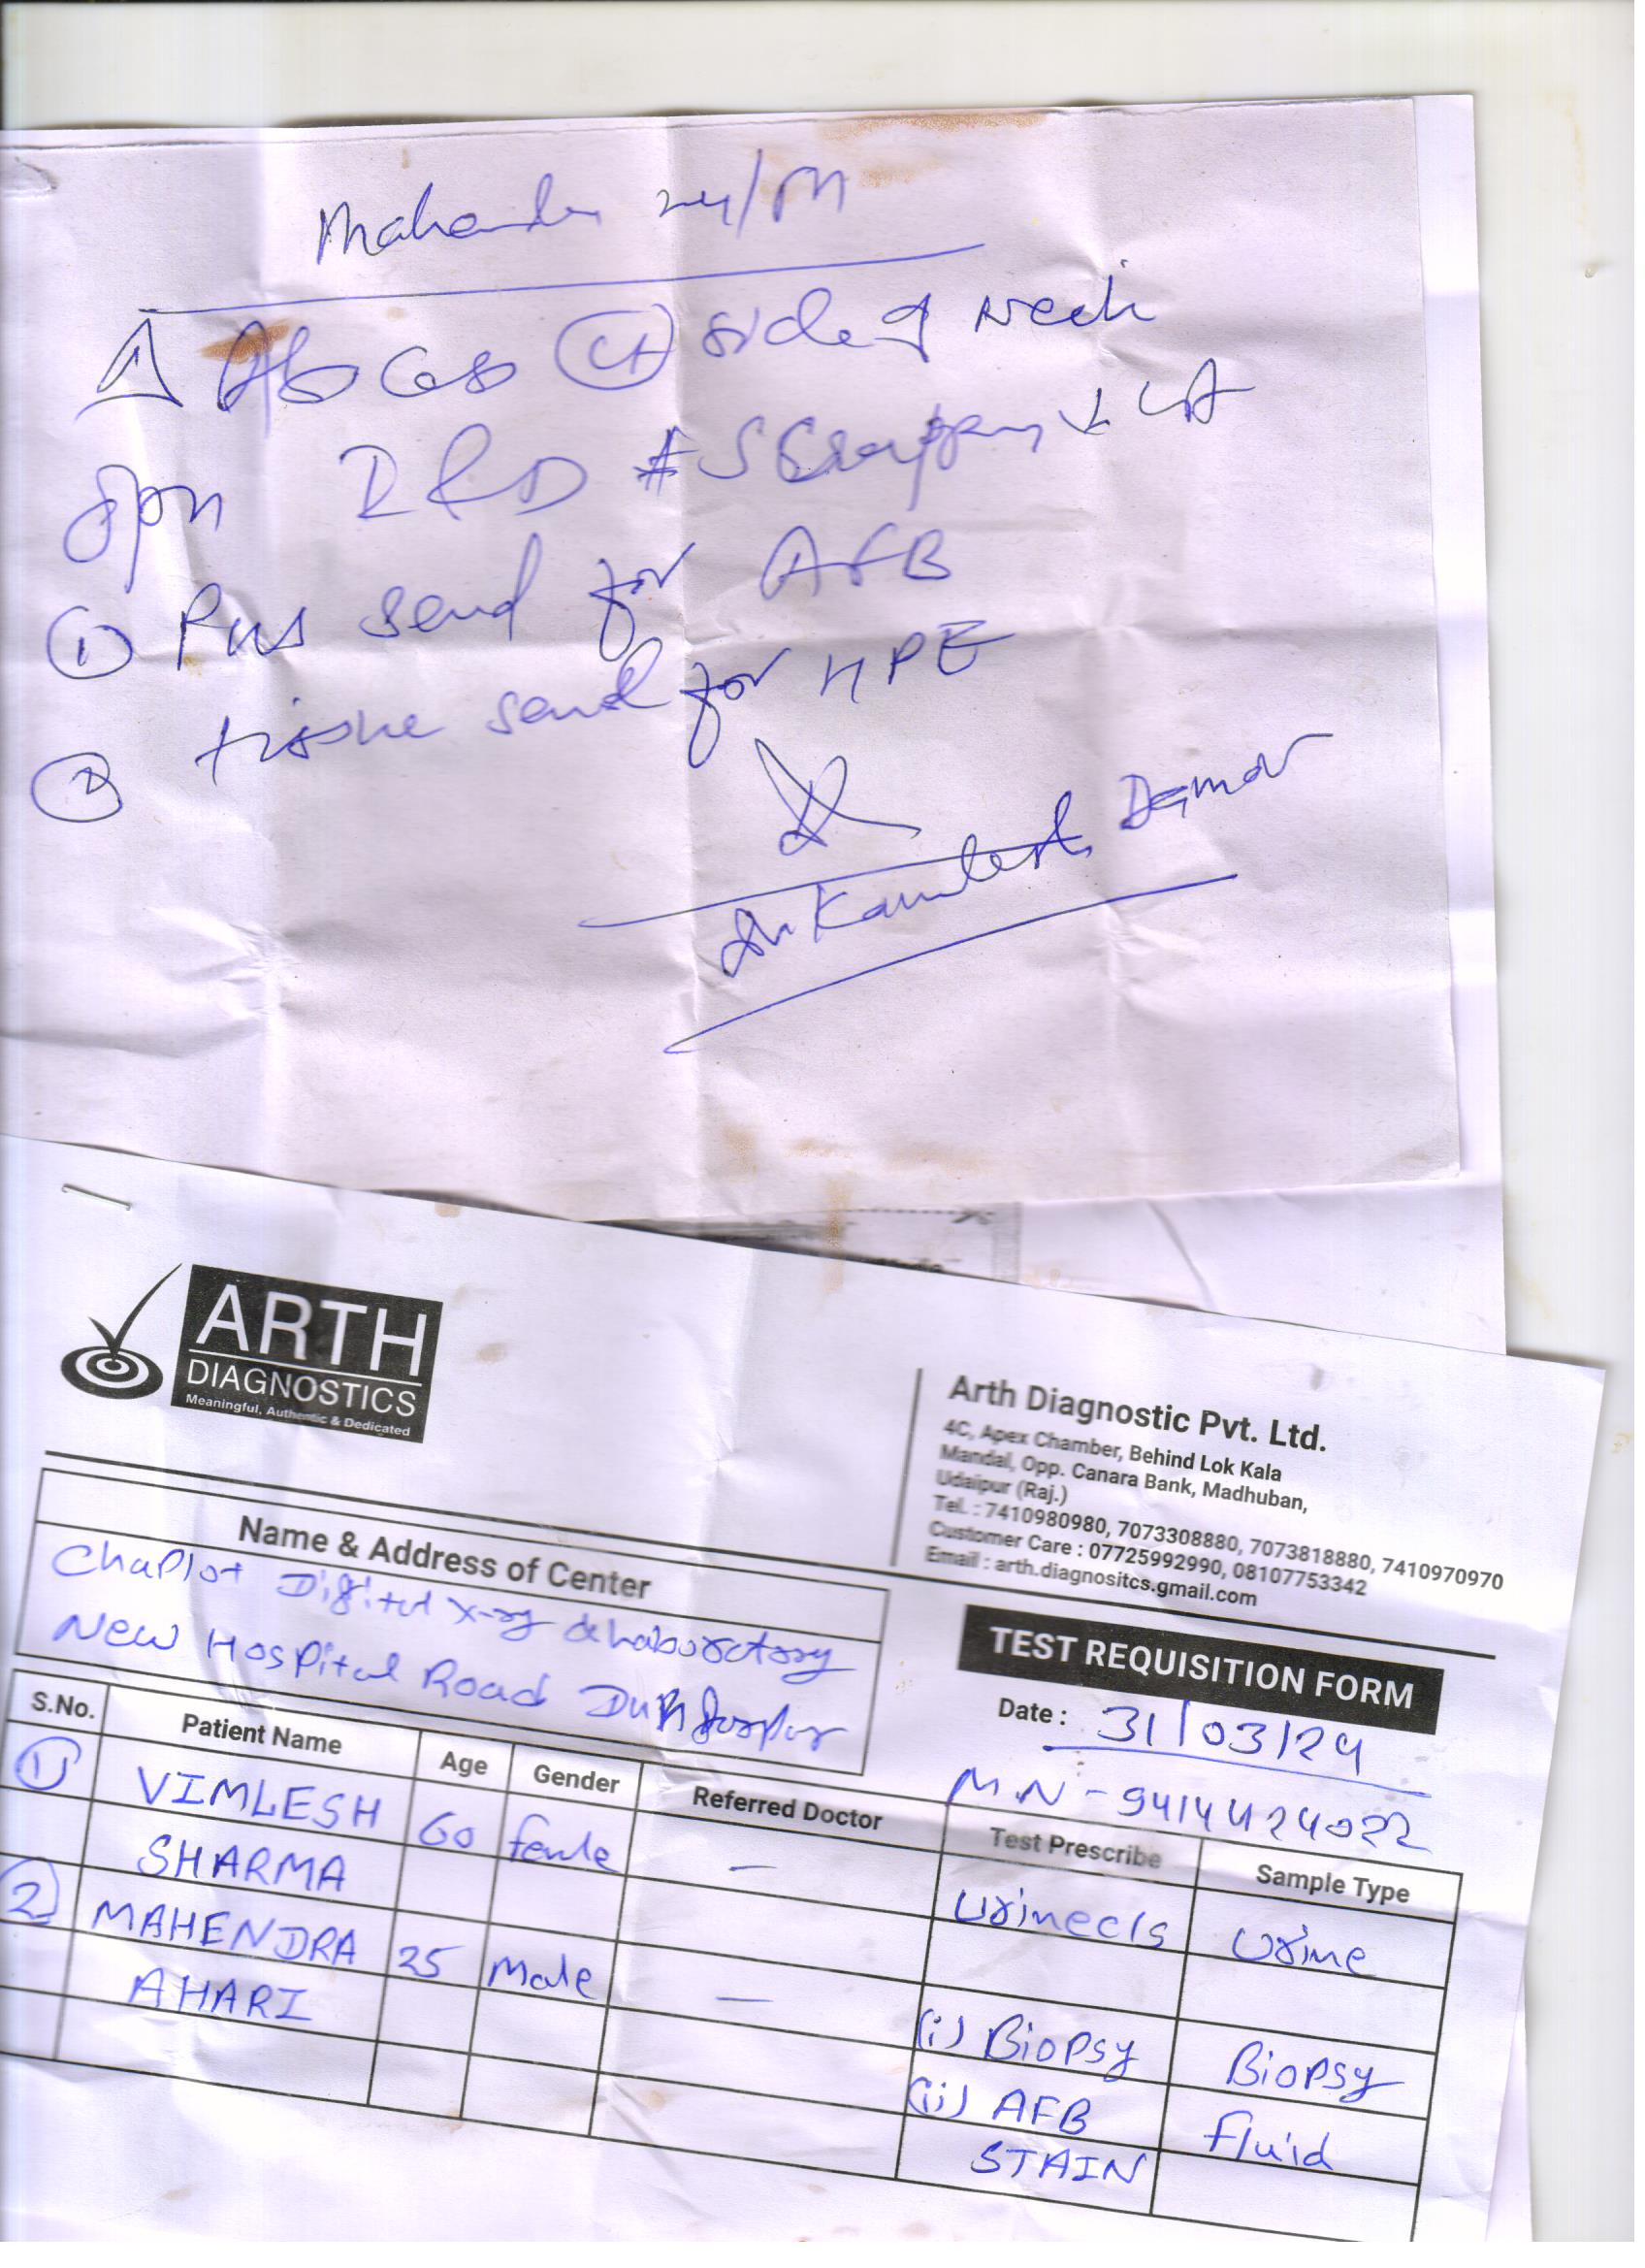 Mahendra 24/M
Δ Abscess (Lt) side of Neck
opn I & D # Scrapping ↓ LA
① Pus send for AFB
② tissue send for HPE
Dr Kamlesh Damor
ARTH
DIAGNOSTICS
Meaningful, Authentic & Dedicated
Arth Diagnostic Pvt. Ltd.
4C, Apex Chamber, Behind Lok Kala
Mandal, Opp. Canara Bank, Madhuban,
Udaipur (Raj.)
Tel. : 7410980980, 7073308880, 7073818880, 7410970970
Customer Care : 07725992990, 08107753342
Email : arth.diagnositcs.gmail.com
Name & Address of Center
Chaplot Digital x-ray & Laboratory
New Hospital Road Dungarpur
TEST REQUISITION FORM
Date : 31/03/24
M.N - 9414424022
S.No. Patient Name Age Gender Referred Doctor Test Prescribe Sample Type
① VIMLESH 60 female — Urine c/s Urine
SHARMA
② MAHENDRA 25 Male — (i) Biopsy Biopsy
AHARI (ii) AFB Fluid
STAIN